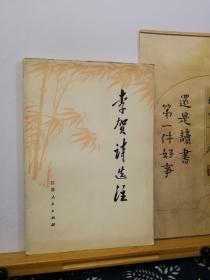 李贺诗选注
江苏人民出版社
還是讀書
第一件好事